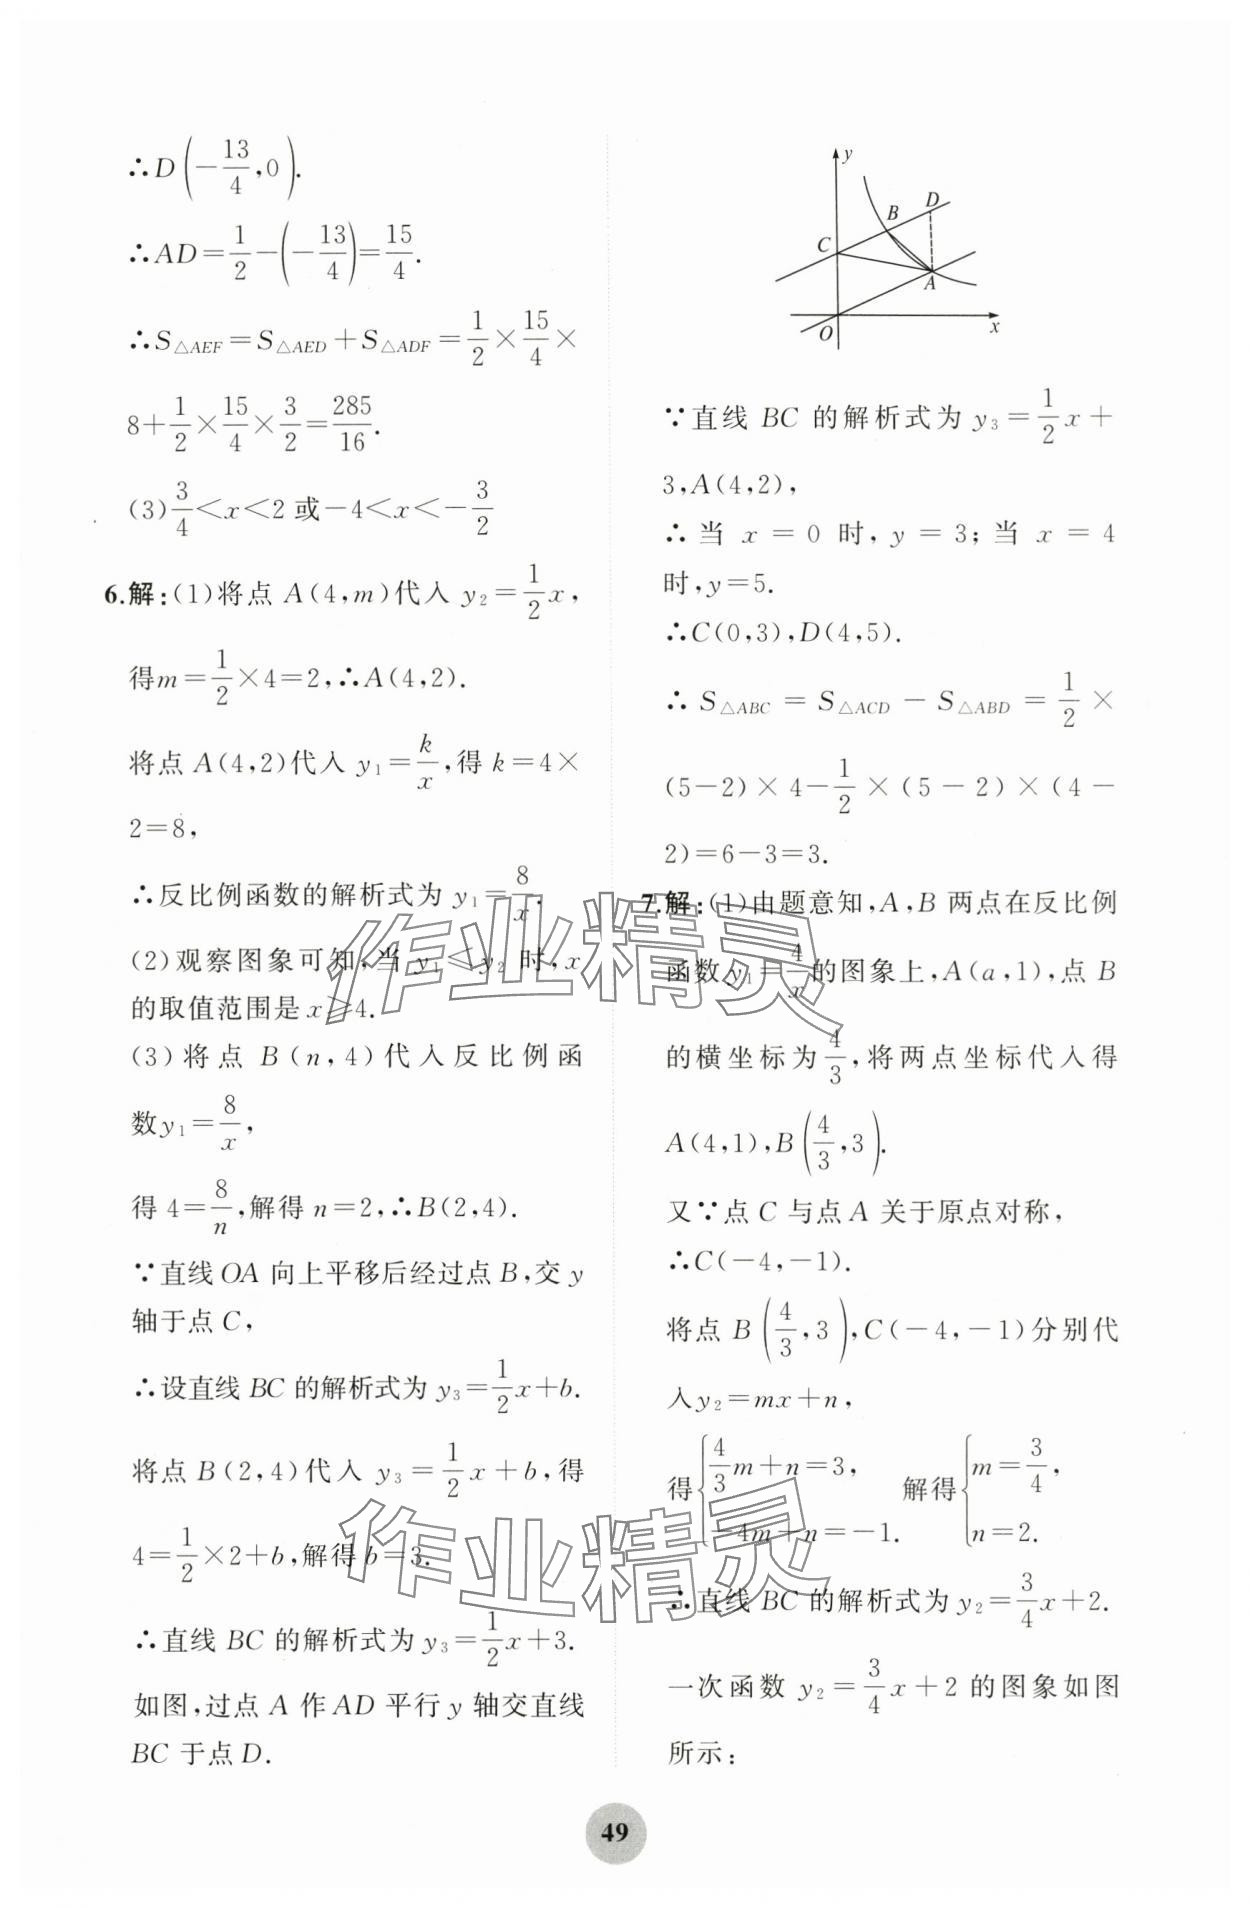 ∴D(-13/4,0).
∴AD=1/2-(-13/4)=15/4.
∴S△AEF=S△AED+S△ADF=1/2×15/4×
8+1/2×15/4×3/2=285/16.
(3)3/4<x<2或-4<x<-3/2
6.解:(1)将点A(4,m)代入y₂=1/2x,
得m=1/2×4=2,∴A(4,2).
将点A(4,2)代入y₁=k/x,得k=4×
2=8,
∴反比例函数的解析式为y₁=8/x.
(2)观察图象可知,当y₁≤y₂时,x
的取值范围是x≥4.
(3)将点B(n,4)代入反比例函
数y₁=8/x,
得4=8/n,解得n=2,∴B(2,4).
∵直线OA向上平移后经过点B,交y
轴于点C,
∴设直线BC的解析式为y₃=1/2x+b.
将点B(2,4)代入y₃=1/2x+b,得
4=1/2×2+b,解得b=3.
∴直线BC的解析式为y₃=1/2x+3.
如图,过点A作AD平行y轴交直线
BC于点D.
y
D
B
C
A
O
x
∵直线BC的解析式为y₃=1/2x+
3,A(4,2),
∴当x=0时,y=3;当x=4
时,y=5.
∴C(0,3),D(4,5).
∴S△ABC=S△ACD-S△ABD=1/2×
(5-2)×4-1/2×(5-2)×(4-
2)=6-3=3.
7.解:(1)由题意知,A,B两点在反比例
函数y₁=4/x的图象上,A(a,1),点B
的横坐标为4/3,将两点坐标代入得
A(4,1),B(4/3,3).
又∵点C与点A关于原点对称,
∴C(-4,-1).
将点B(4/3,3),C(-4,-1)分别代
入y₂=mx+n,
得{4/3m+n=3, -4m+n=-1. 解得{m=3/4, n=2.
∴直线BC的解析式为y₂=3/4x+2.
一次函数y₂=3/4x+2的图象如图
所示:
49
作业精灵
作业精灵